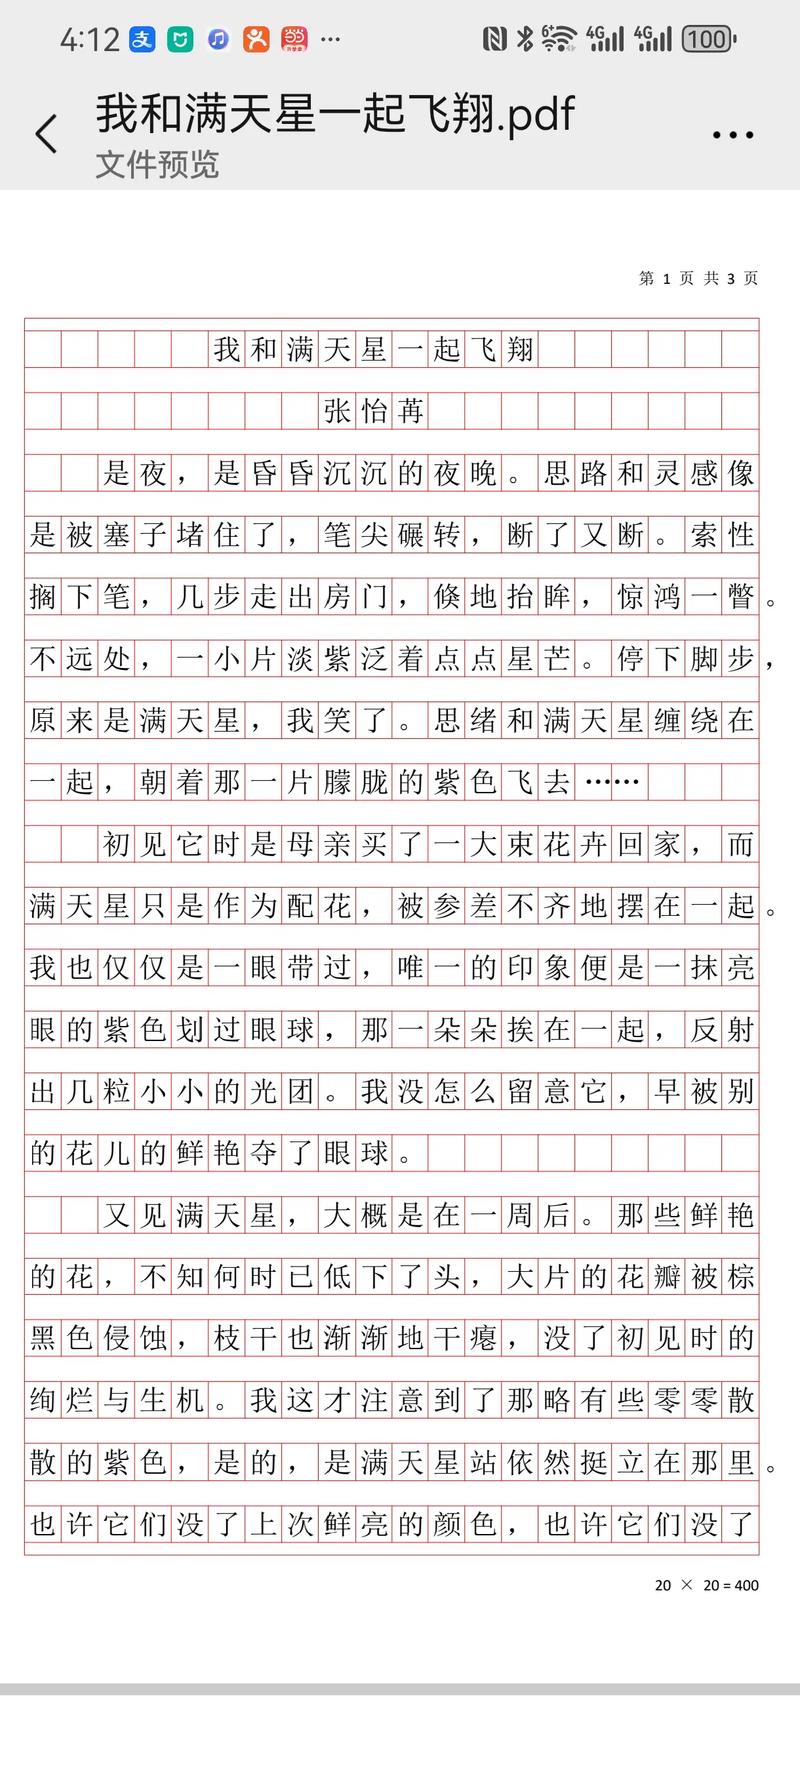 4:12
6+ 4G 4G 100
我和满天星一起飞翔.pdf
文件预览
第 1 页 共 3 页
我和满天星一起飞翔
张怡苒
是夜，是昏昏沉沉的夜晚。思路和灵感像
是被塞子堵住了，笔尖碾转，断了又断。索性
搁下笔，几步走出房门，倏地抬眸，惊鸿一瞥。
不远处，一小片淡紫泛着点点星芒。停下脚步，
原来是满天星，我笑了。思绪和满天星缠绕在
一起，朝着那一片朦胧的紫色飞去……
初见它时是母亲买了一大束花卉回家，而
满天星只是作为配花，被参差不齐地摆在一起。
我也仅仅是一眼带过，唯一的印象便是一抹亮
眼的紫色划过眼球，那一朵朵挨在一起，反射
出几粒小小的光团。我没怎么留意它，早被别
的花儿的鲜艳夺了眼球。
又见满天星，大概是在一周后。那些鲜艳
的花，不知何时已低下了头，大片的花瓣被棕
黑色侵蚀，枝干也渐渐地干瘪，没了初见时的
绚烂与生机。我这才注意到了那略有些零零散
散的紫色，是的，是满天星站依然挺立在那里。
也许它们没了上次鲜亮的颜色，也许它们没了
20 × 20 = 400